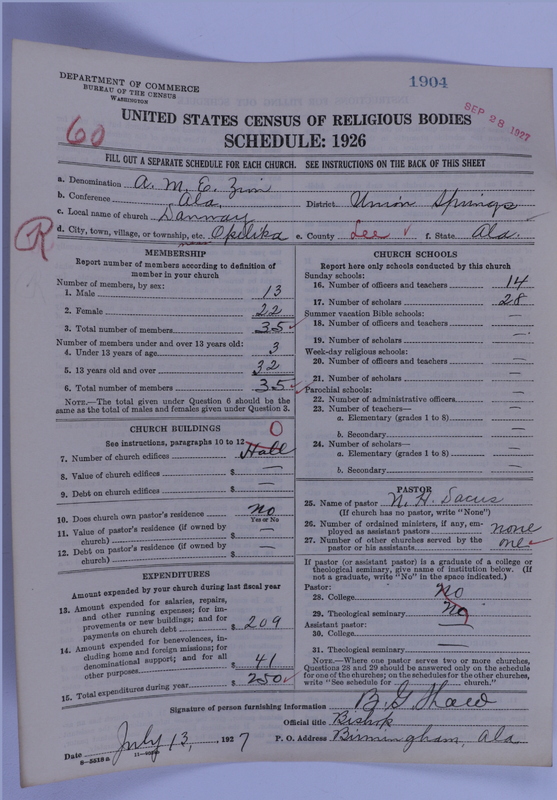 1904
DEPARTMENT OF COMMERCE
BUREAU OF THE CENSUS
WASHINGTON
SEP 28 1927
60
UNITED STATES CENSUS OF RELIGIOUS BODIES
SCHEDULE: 1926
FILL OUT A SEPARATE SCHEDULE FOR EACH CHURCH. SEE INSTRUCTIONS ON THE BACK OF THIS SHEET
a. Denomination A. M. E. Zion
b. Conference Ala. District Union Springs
c. Local name of church Danway
R
d. City, town, village, or township, etc. near Opelika e. County Lee f. State Ala.
MEMBERSHIP
Report number of members according to definition of
member in your church
Number of members, by sex:
1. Male 13
2. Female 22
3. Total number of members 35
Number of members under and over 13 years old:
4. Under 13 years of age 3
5. 13 years old and over 32
6. Total number of members 35
NOTE.—The total given under Question 6 should be
same as the total of males and females given under Question 3.
CHURCH BUILDINGS
See instructions, paragraphs 10 to 12
0
7. Number of church edifices Hall
8. Value of church edifices $ —
9. Debt on church edifices $ —
10. Does church own pastor's residence No
Yes or No
11. Value of pastor's residence (if owned by
church) $ —
12. Debt on pastor's residence (if owned by
church) $ —
EXPENDITURES
Amount expended by your church during last fiscal year
13. Amount expended for salaries, repairs,
and other running expenses; for im-
provements or new buildings; and for
payments on church debt $ 209
14. Amount expended for benevolences, in-
cluding home and foreign missions; for
denominational support; and for all
other purposes $ 41
15. Total expenditures during year $ 250
CHURCH SCHOOLS
Report here only schools conducted by this church
Sunday schools:
16. Number of officers and teachers 14
17. Number of scholars 28
Summer vacation Bible schools:
18. Number of officers and teachers —
19. Number of scholars —
Week-day religious schools:
20. Number of officers and teachers —
21. Number of scholars —
Parochial schools:
22. Number of administrative officers —
23. Number of teachers—
a. Elementary (grades 1 to 8) —
b. Secondary —
24. Number of scholars—
a. Elementary (grades 1 to 8) —
b. Secondary —
PASTOR
25. Name of pastor N. H.
(If church has no pastor, write "None")
26. Number of ordained ministers, if any, em-
ployed as assistant pastors none
27. Number of other churches served by the
pastor or his assistants one
If pastor (or assistant pastor) is a graduate of a college or
theological seminary, give name of institution below. (If
not a graduate, write "No" in the space indicated.)
Pastor:
28. College No
29. Theological seminary No
Assistant pastor:
30. College —
31. Theological seminary —
NOTE.—Where one pastor serves two or more churches,
Questions 28 and 29 should be answered only on the schedule
for one of the churches; on the schedules for the other churches,
write "See schedule for church."
Signature of person furnishing information B G Shaw
Official title Bishop
Date July 13, 1927 P. O. Address Birmingham, Ala
8-5318 a